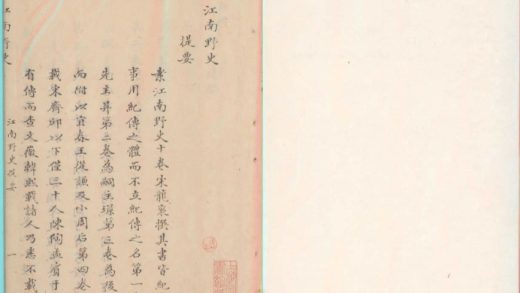 江南野史
提要
案江南野史十卷宋龍袞撰其書皆紀
事用紀傳之體而不立紀傳之名第一
先主昇第二卷為嗣主璟第三卷為後
而附以宜春王從謙及小周后第四卷
載宋齊邱以下僅三十人陳陶孟賓于
有傳而查文徽韓熙載諸人乃悉不載
江南野史
江南野史提要
一